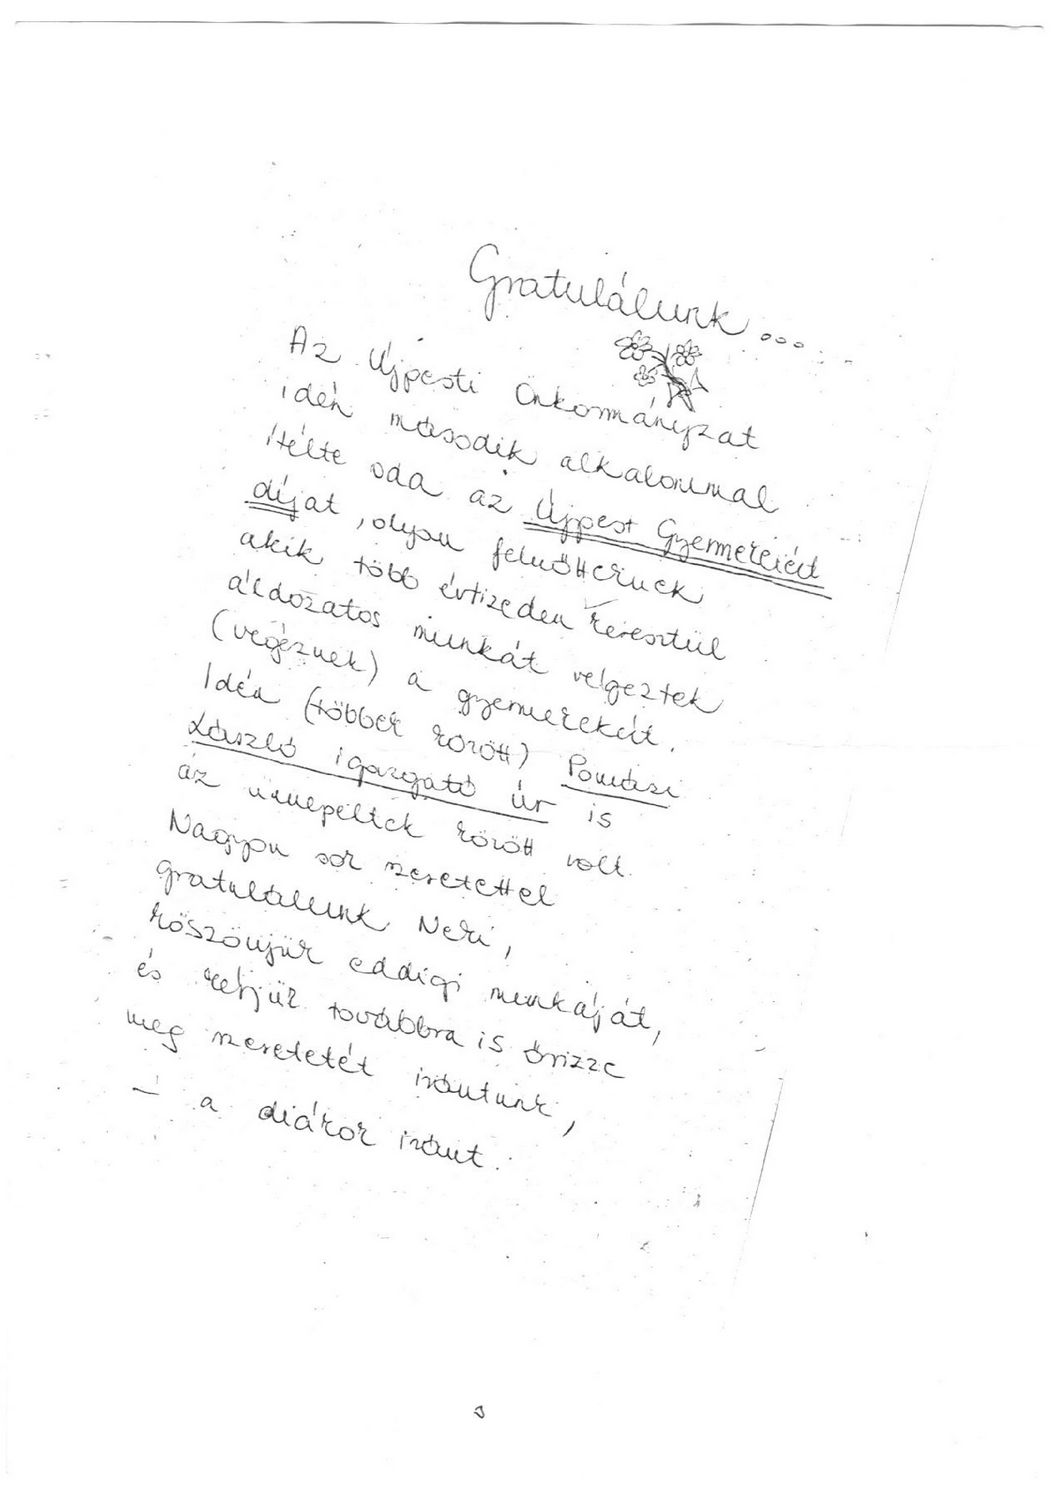 Gratulálunk ...
Az Újpesti Önkormányzat
idén második alkalommal
ítélte oda az Újpest Gyermekeiért
díjat, olyan felnőtteknek
akik több évtizeden keresztül
áldozatos munkát végeztek
(végeznek) a gyermekekért.
Idén (többek között) Pomázi
László igazgató úr is
az ünnepeltek között volt.
Nagyon sok szeretettel
gratulálunk Neki,
köszönjük eddigi munkáját,
és kérjük továbbra is őrizze
meg szeretetét irántunk,
- a diákok iránt.